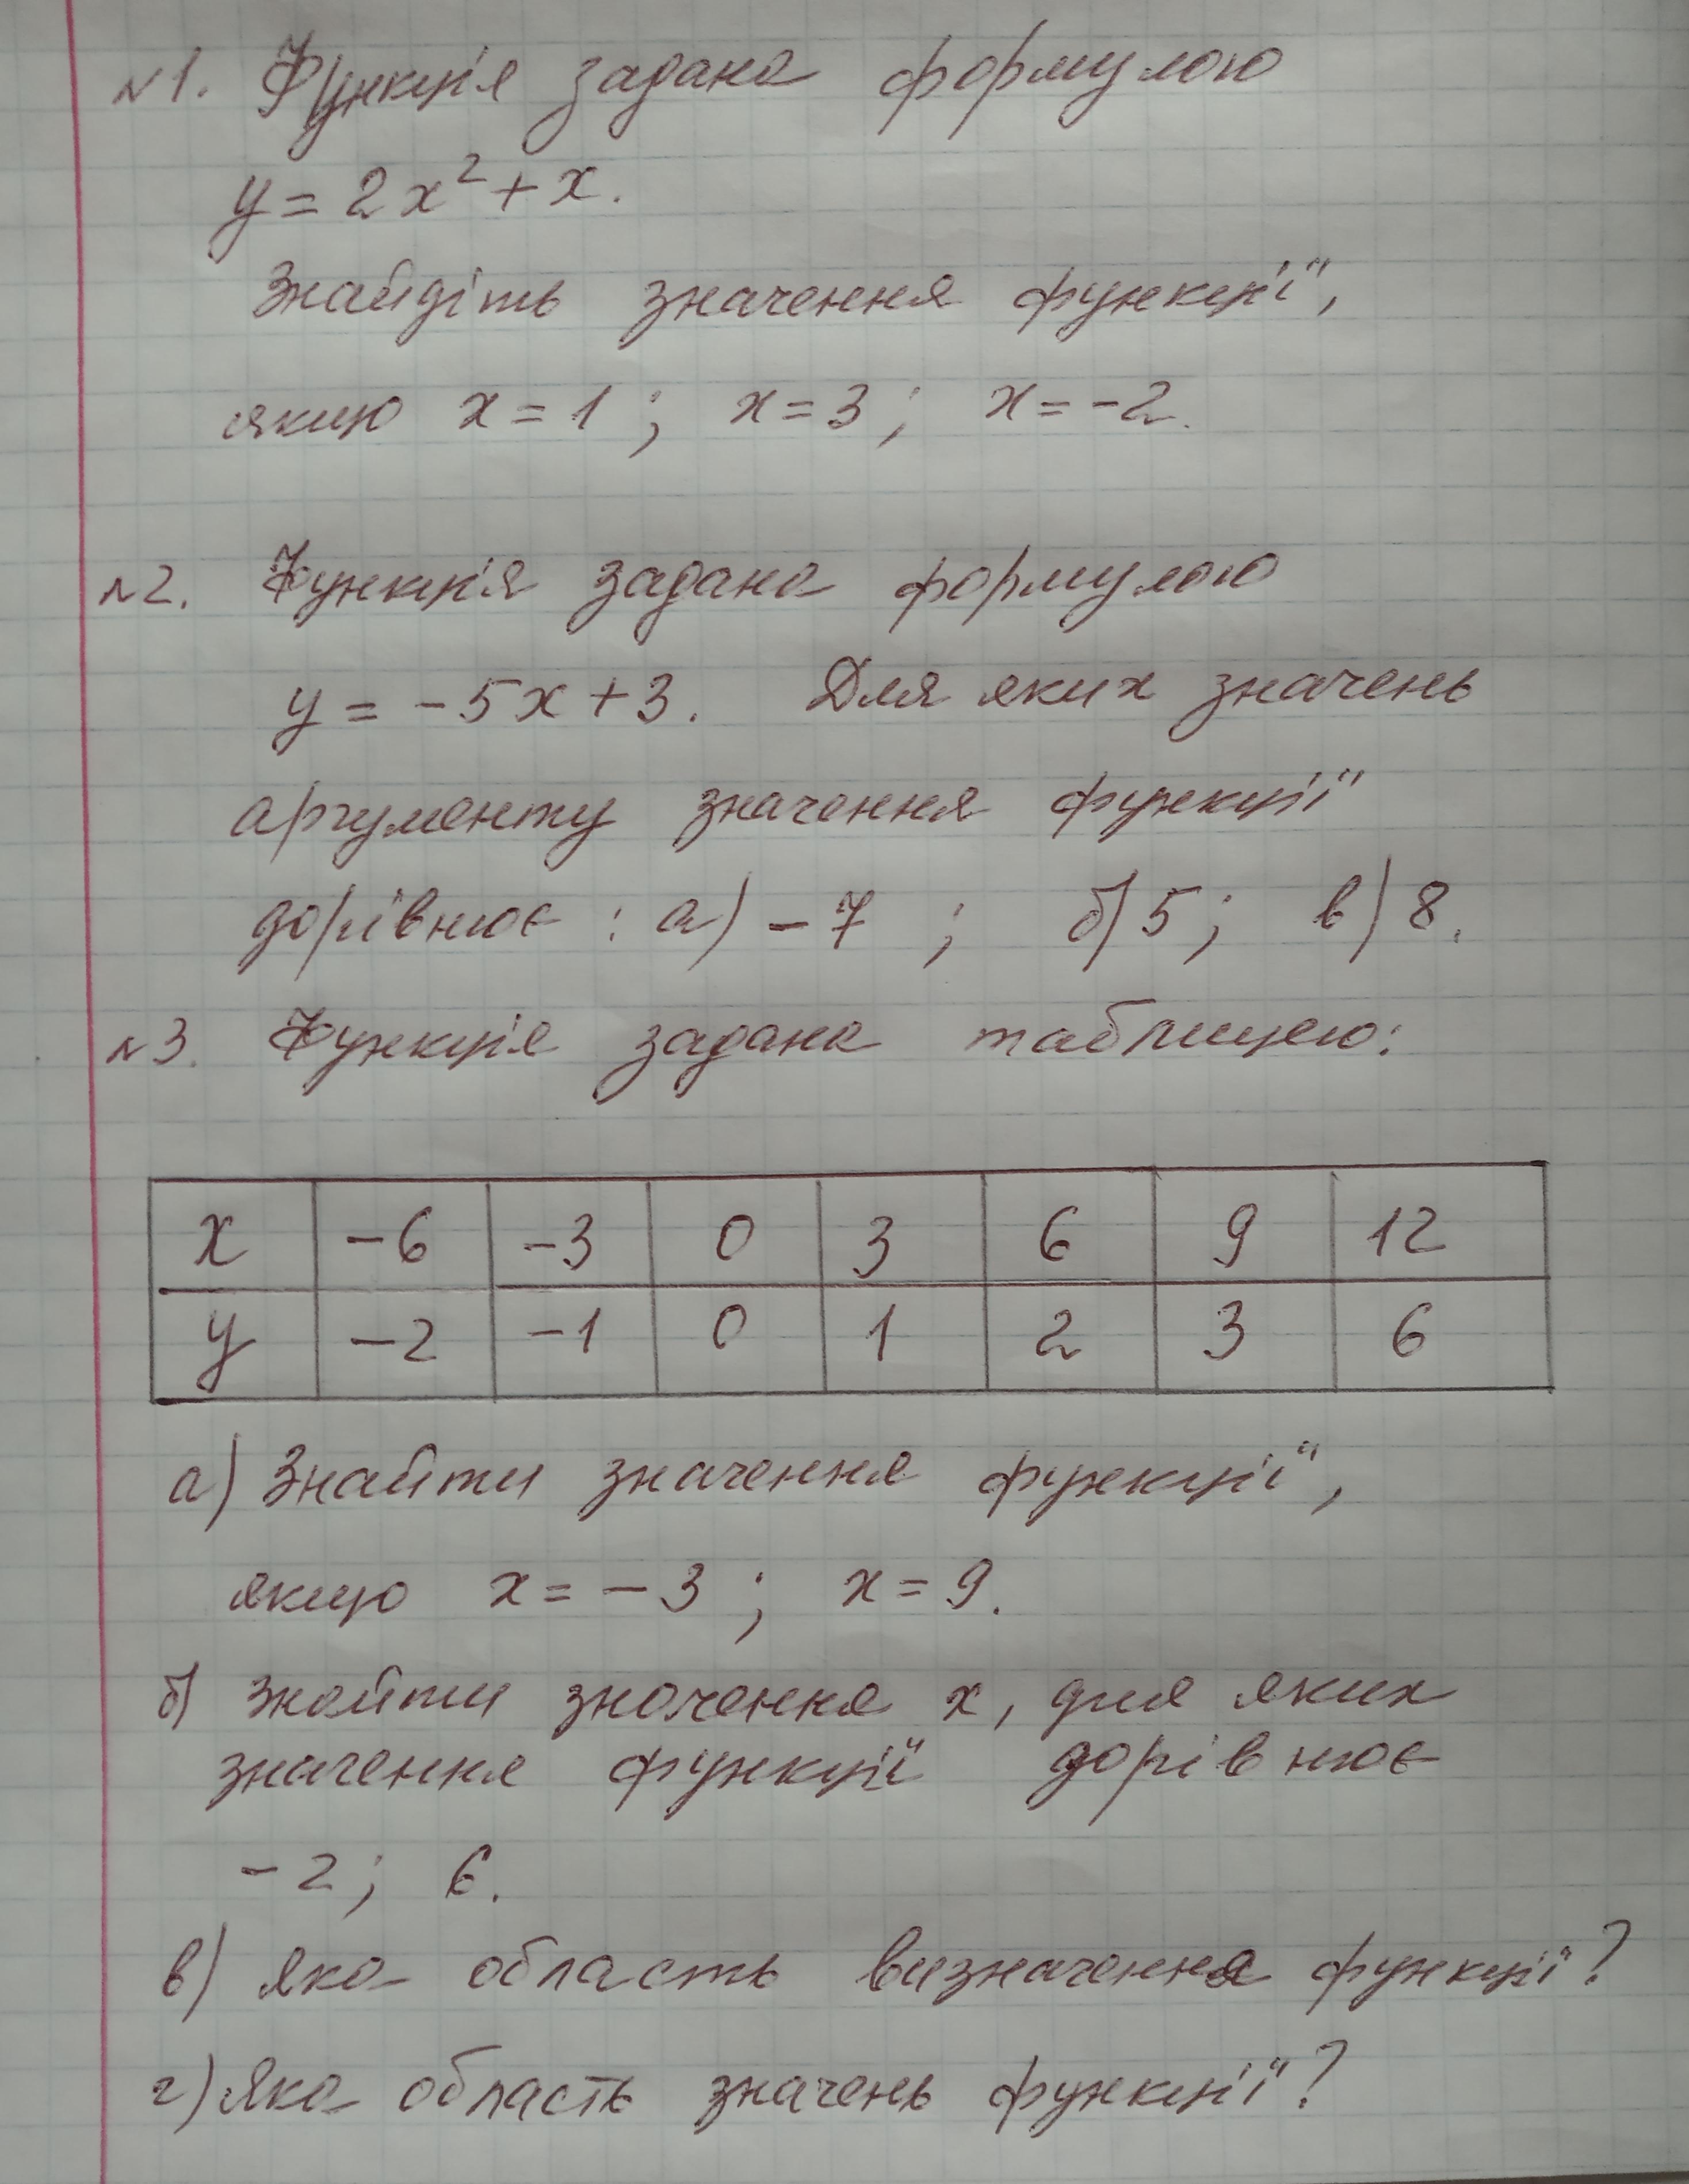 №1. Функція задана формулою
y = 2x² + x.
Знайдіть значення функції,
якщо x = 1; x = 3; x = -2.
№2. Функція задана формулою
y = -5x + 3. Для яких значень
аргументу значення функції
дорівнює: а) -7; б) 5; в) 8.
№3. Функція задана таблицею:
x -6 -3 0 3 6 9 12
y -2 -1 0 1 2 3 6
а) Знайти значення функції,
якщо x = -3; x = 9.
б) знайти значення x, для яких
значення функції дорівнює
-2; 6.
в) яка область визначення функції?
г) Яка область значень функції?